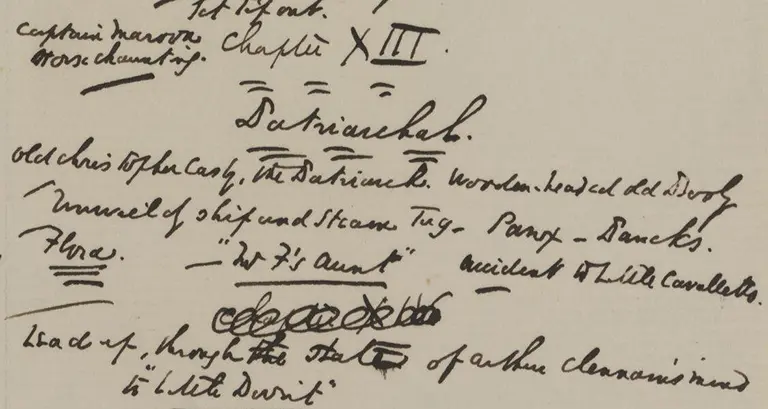 Let Tip out.
Captain Maroon
Horse chaunting.
Chapter XIII.
Patriarchal.
Old Christopher Casby, the Patriarch. Wooden-headed old Booby
Unwieldy ship and Steam Tug - Panx - Pancks.
Flora. - "Mr F's Aunt" accident to Little Cavalletto.
Lead up, through the state of Arthur Clennam's mind
to "Little Dorrit"